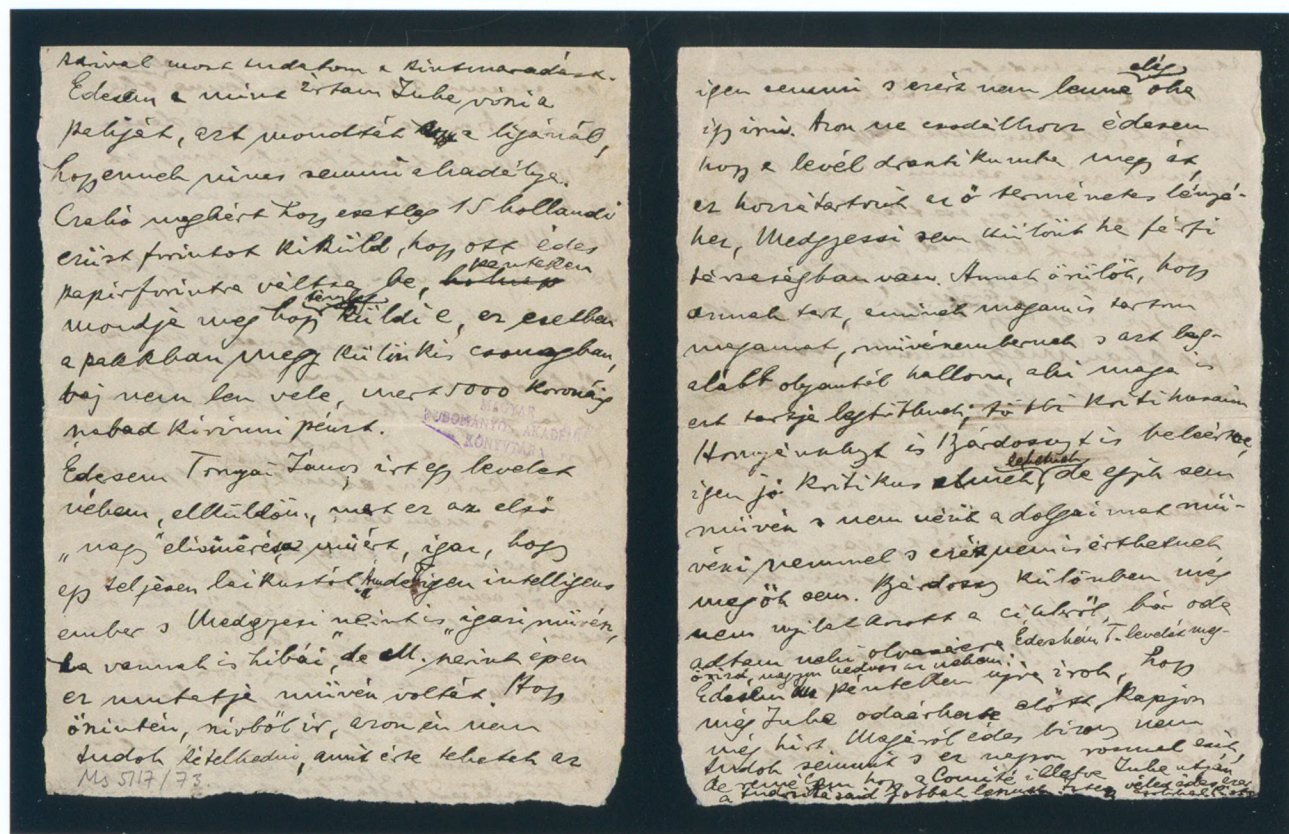 most tudatom a
Édesem a mint írtam Juba viszi a
paliját, azt mondták a ligánál,
hogy ennek nincs semmi akadálya.
Czakó megkért hogy esetleg 15 hollandi
ezüst forintot kiküld, hogy ott édes
papirforintra váltsa be, pénteken
mondja meg hogy küldi e, ez esetben
a pakkban megy külön kis csomagban,
baj nem lesz vele, mert 5000 koronáig
szabad kivinni pénzt.
MAGYAR
TUDOMÁNYOS AKADÉMIA
KÖNYVTÁRA
Édesem Tornyai János írt egy levelet
nékem, elküldöm, mert ez az első
„nagy” elismerés, igaz, hogy
egy teljesen laikustól, igen intelligens
ember s Medgyesi szerint is igazi művész,
ha vannak is hibái, de M. szerint épen
ez mutatja művész voltát. Hogy
őszintén, szivből ír, azon én nem
tudok kételkedni, amit érte tehetek az
Ms 5117/73
igen semmi s ezért nem lenne oka
így írni. Azon ne csodálkozz édesem
hogy a levél drasztikumba megy át
ez hozzátartozik az ő természetes lényé-
hez, Medgyessi sem különb ha férfi
társaságban van. Annak örülök, hogy
annak tart, aminek magam is tartom
magamat, művészembernek s azt leg-
alább olyantól hallom, aki maga is
ezt tartja legtöbbnek, többi kritikusaim
és Bárdossyt is beleértve,
igen jó kritikus lehetnek, de egyik sem
művész s nem nézik a dolgaimat mű-
vészi szemmel s ezért nem is érthetnek
meg ők sem. Bárdossy különben még
nem nyilatkozott a cikkről, bár oda
adtam neki olvasásra. Édeském T. levelét meg-
őrizd, nagyon kedves az nékem.
Édesem pénteken újra írok, hogy
még Juba odaérkezte előtt kapjon
még hírt. Magáról édes bizony nem
tudok semmit s ez nagyon rosszul esik,
de remélem, hogy a Comité illetve Juba utján